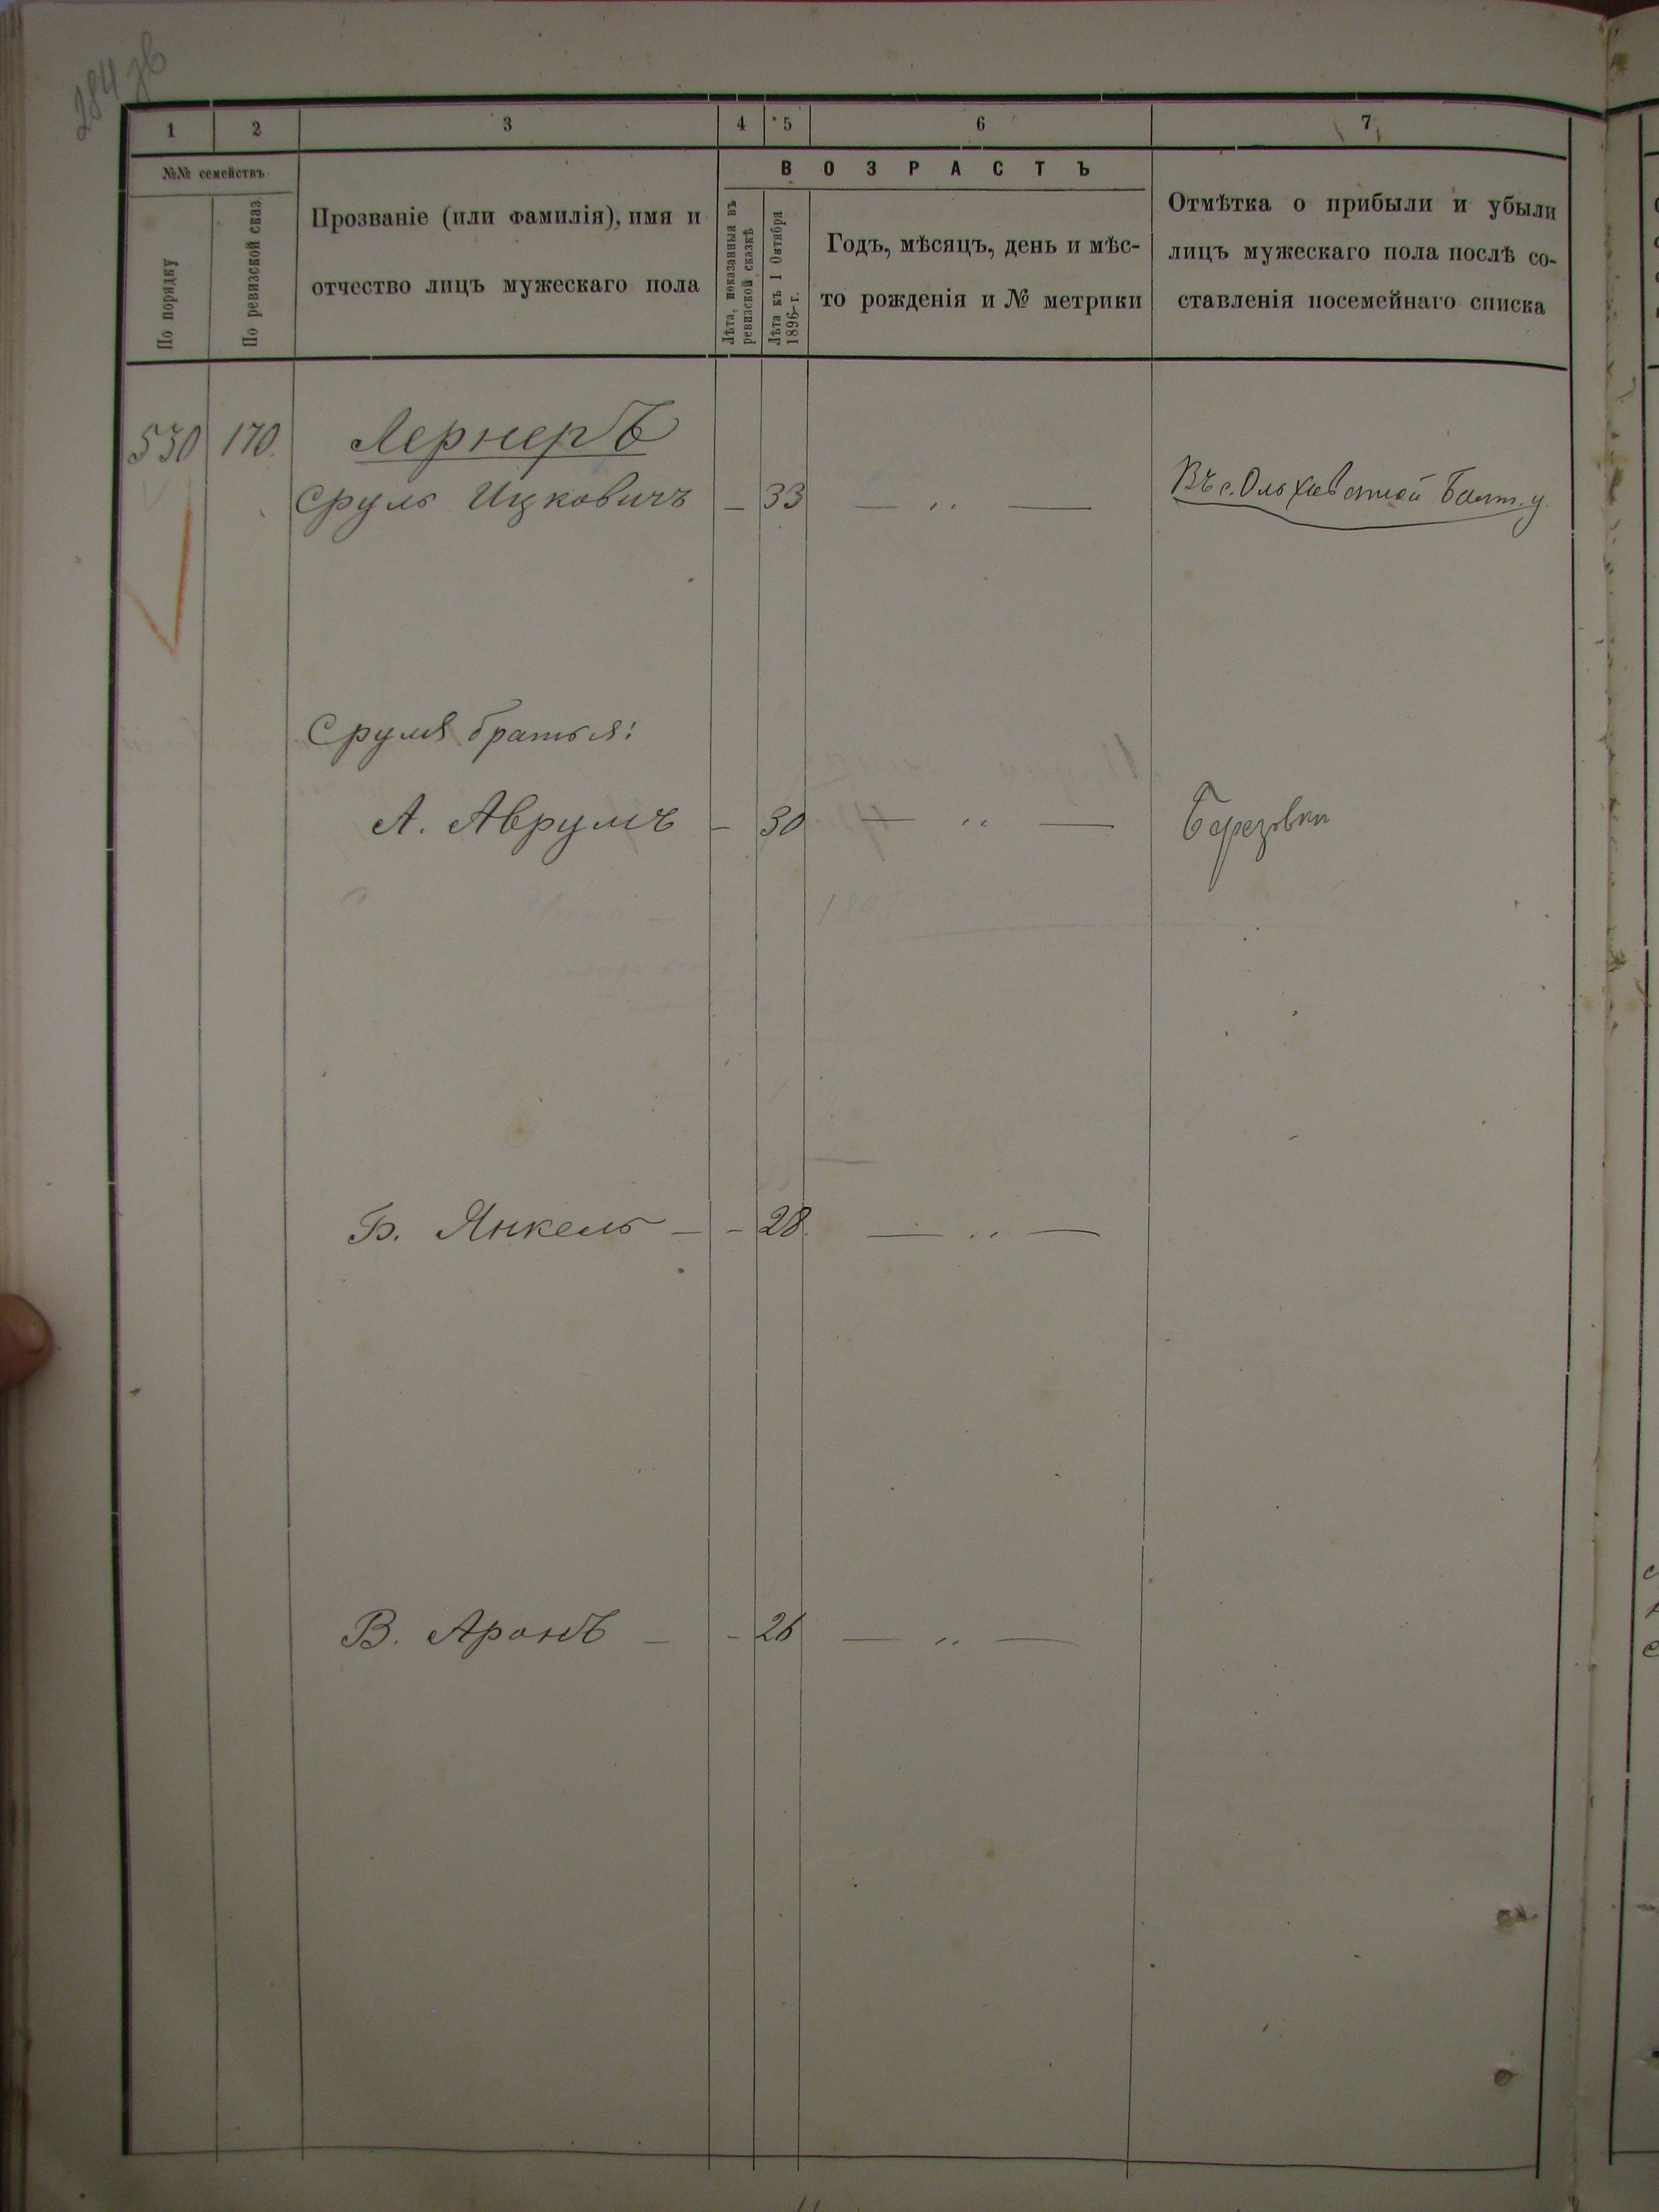 284 зв
1 2 3 4 5 6 7
№№ семействъ
По порядку
По ревизской сказ.
Прозваніе (или фамилія), имя и
отчество лицъ мужескаго пола
ВОЗРАСТЪ
Лѣта, показанныя въ
ревизской сказкѣ
Лѣта къ 1 Октября
1896 г.
Годъ, мѣсяцъ, день и мѣс-
то рожденія и № метрики
Отмѣтка о прибыли и убыли
лицъ мужескаго пола послѣ со-
ставленія посемейнаго списка
530 170. Лернеръ
Сруль Ицковичъ — 33 — „ — Въ с. Ольховатой Балт. у.
Сруля братья:
А. Аврумъ — 30 — „ — Березовка
Б. Янкель — — 28. — „ —
В. Аронъ — — 26 — „ —